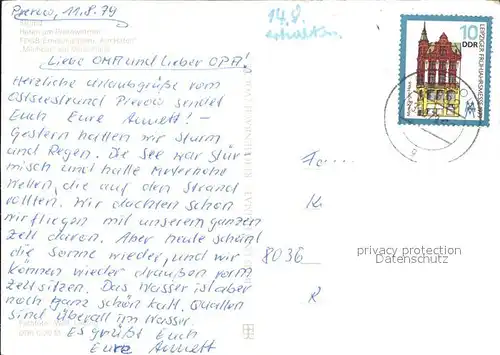 Prerow, 11.8.79
14.8. erhalten
10
DDR
LEIPZIGER FRÜHJAHRSMESSE
Liebe OMA und Lieber OPA!
Herzliche Urlaubsgrüße vom
Ostseestrand Prerow sendet
Euch Eure Annett! –
Gestern hatten wir Sturm
und Regen. Die See war stür
misch und hatte meterhohe
Wellen, die auf den Strand
rollten. Wir dachten schon
wir fliegen mit unserem ganzen
Zelt davon. Aber heute scheint
die Sonne wieder, und wir
können wieder draußen vorm
Zelt sitzen. Das Wasser ist aber
noch ganz schön kalt. Quallen
sind überall im Wasser.
Es grüßt Euch
Eure Annett
Fa...
K
8036
R
privacy protection
Datenschutz